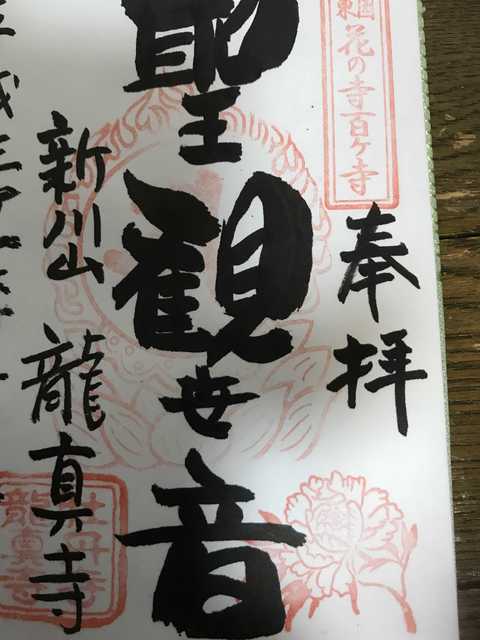 東国花の寺百ヶ寺
奉拝
聖観世音
新川山 龍真寺
牡丹寺
龍真寺